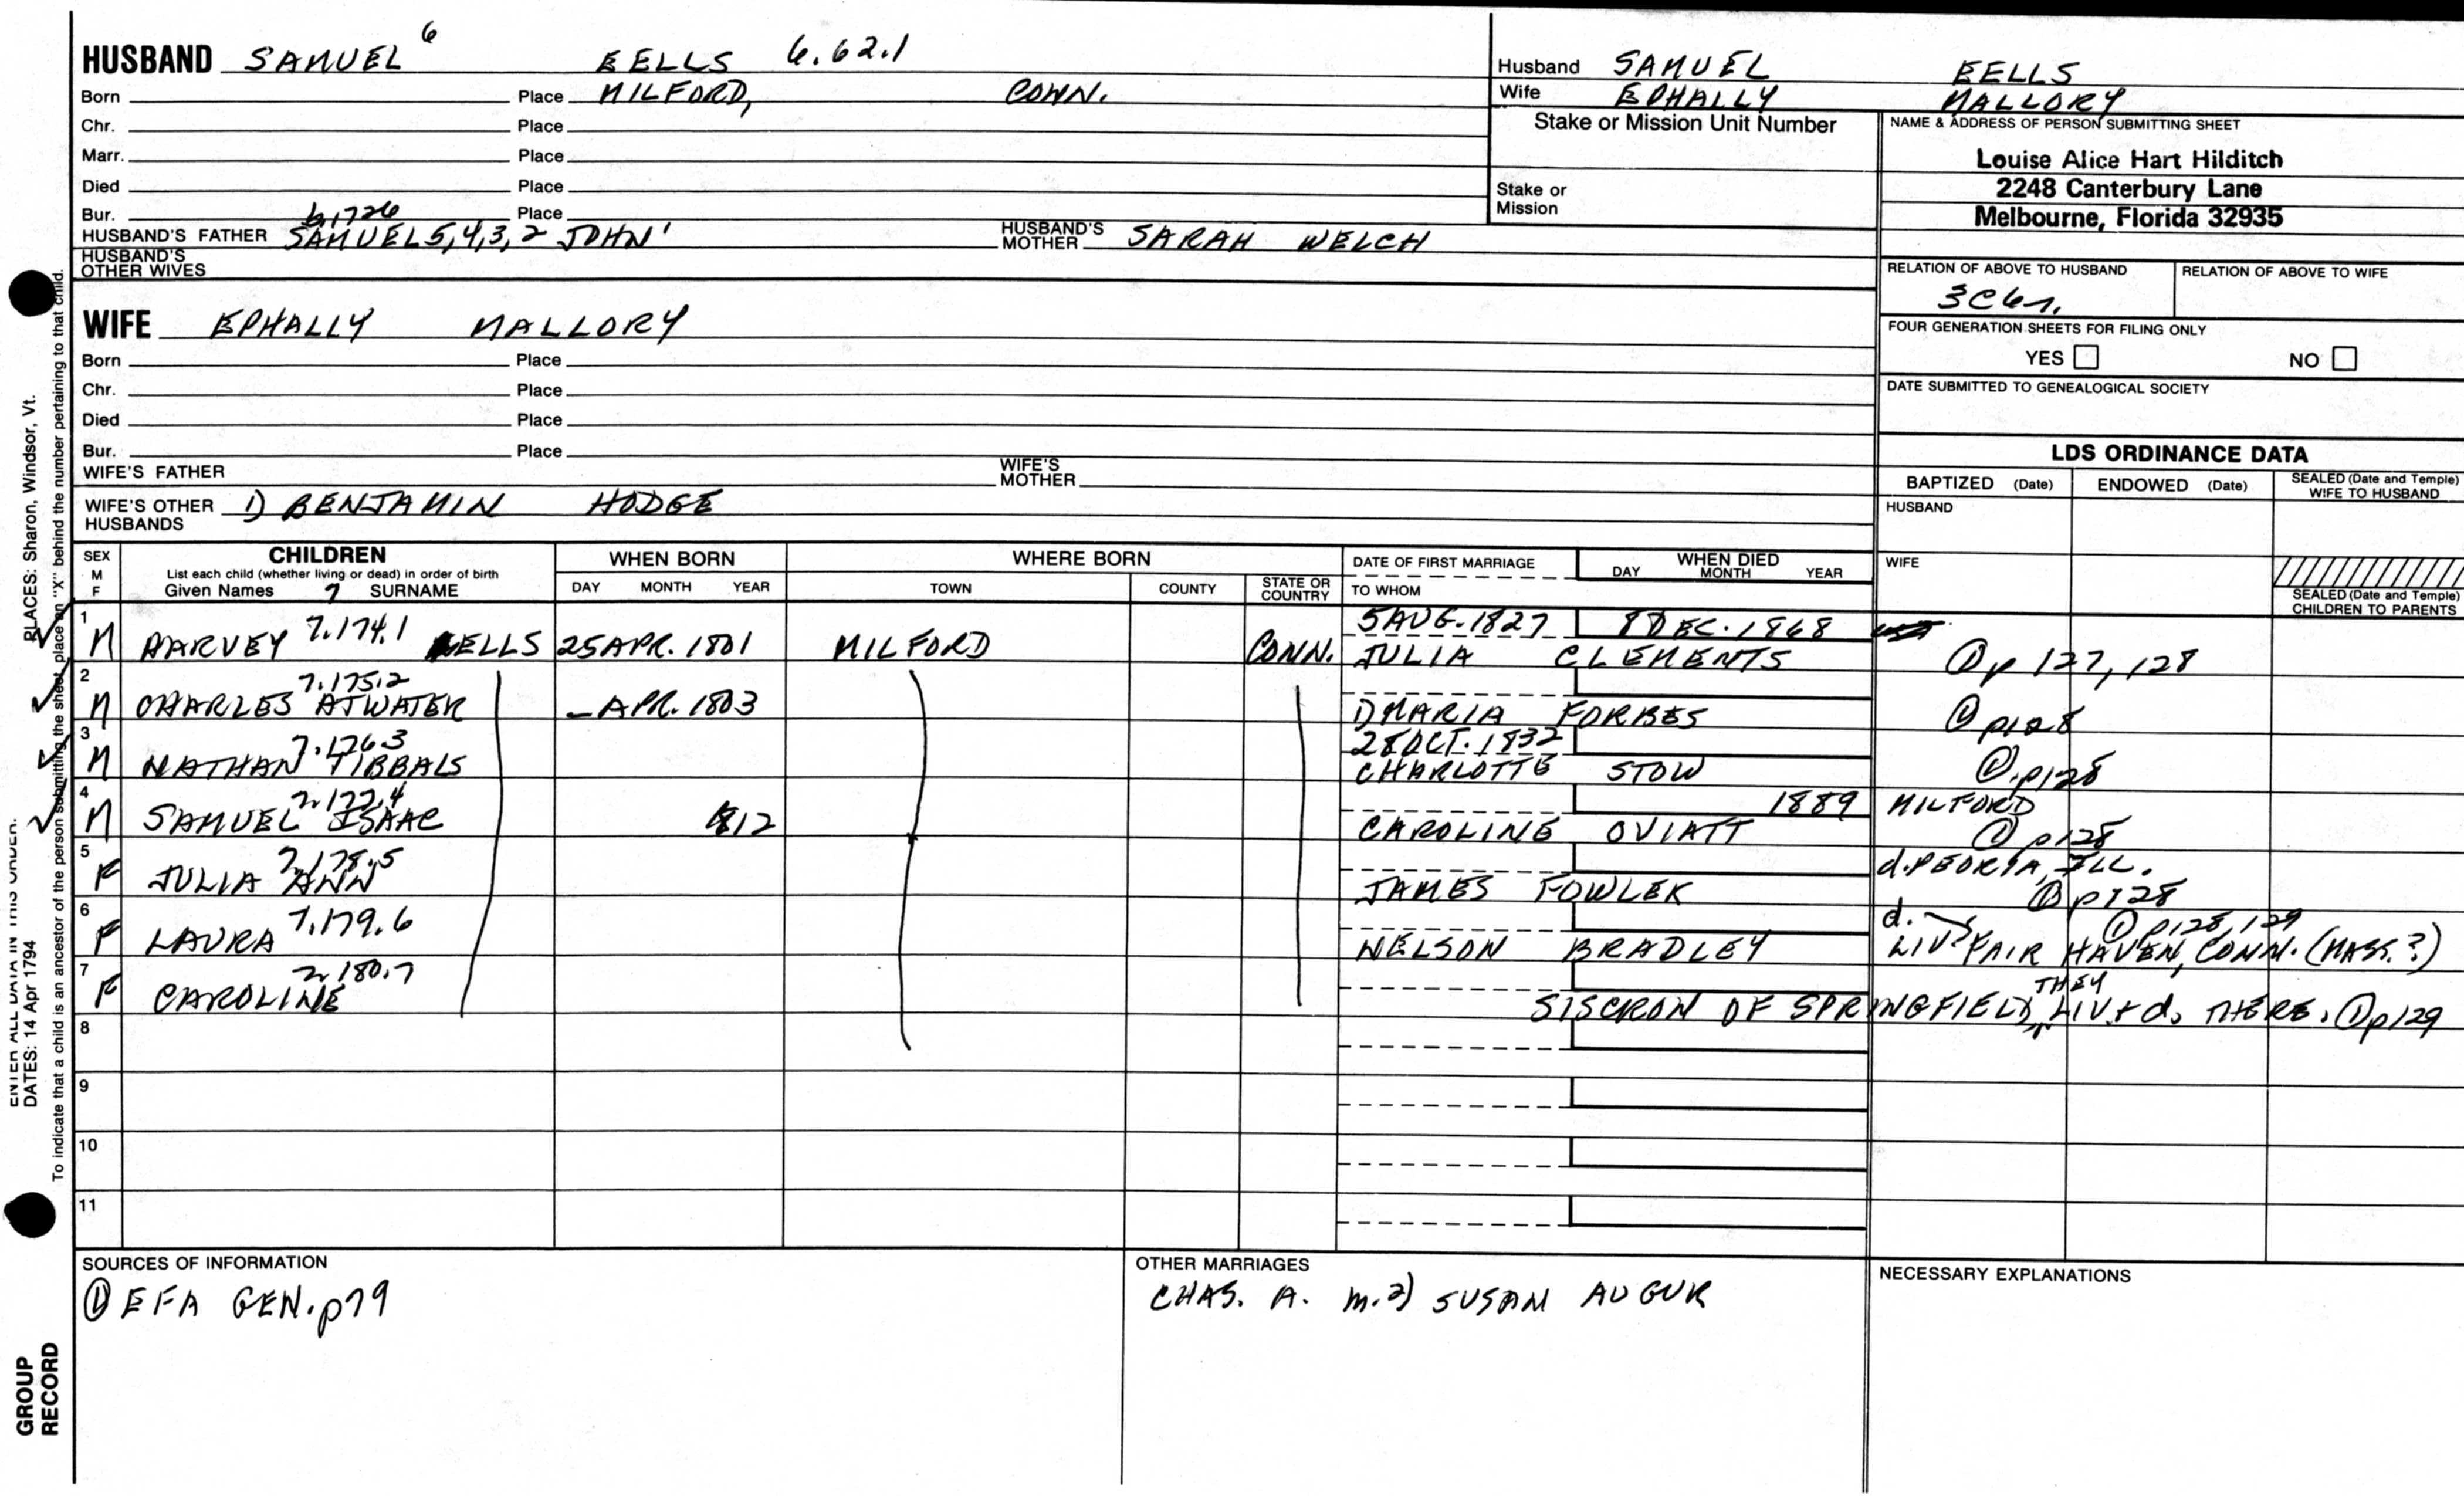 HUSBAND SAMUEL 6 EELLS 6.62.1
Born Place MILFORD, CONN.
Chr. Place
Marr. Place
Died Place
Bur. Place
b,1726
HUSBAND'S FATHER SAMUEL 5,4,3,2 JOHN 1 HUSBAND'S MOTHER SARAH WELCH
HUSBAND'S OTHER WIVES
Husband SAMUEL EELLS
Wife EPHALLY MALLORY
Stake or Mission Unit Number
Stake or Mission
NAME & ADDRESS OF PERSON SUBMITTING SHEET
Louise Alice Hart Hilditch
2248 Canterbury Lane
Melbourne, Florida 32935
RELATION OF ABOVE TO HUSBAND RELATION OF ABOVE TO WIFE
FOUR GENERATION SHEETS FOR FILING ONLY
YES NO
DATE SUBMITTED TO GENEALOGICAL SOCIETY
WIFE EPHALLY MALLORY
Born Place
Chr. Place
Died Place
Bur. Place
WIFE'S FATHER WIFE'S MOTHER
WIFE'S OTHER HUSBANDS 1) BENJAMIN HODGE
LDS ORDINANCE DATA
BAPTIZED (Date) ENDOWED (Date) SEALED (Date and Temple) WIFE TO HUSBAND
HUSBAND
WIFE
SEALED (Date and Temple) CHILDREN TO PARENTS
SEX M F
CHILDREN
List each child (whether living or dead) in order of birth
Given Names 7 SURNAME
WHEN BORN
DAY MONTH YEAR
WHERE BORN
TOWN COUNTY STATE OR COUNTRY
DATE OF FIRST MARRIAGE
TO WHOM
WHEN DIED
DAY MONTH YEAR
1 7.174.1 5 AUG. 1827 8 DEC. 1868
M HARVEY EELLS 25 APR. 1801 MILFORD CONN. JULIA CLEMENTS ① p 127, 128
2 7.175.2
M CHARLES ATWATER _ APR. 1803 1) MARIA FORBES ① p128
3 7.176.3 28 OCT. 1832
M NATHAN TIBBALS CHARLOTTE STOW ① p128
4 7.177.4 1889 MILFORD
M SAMUEL ISAAC 1812 CAROLINE OVIATT ① p128
5 7.178.5 d. PEORIA, ILL.
F JULIA ANN JAMES FOWLER ① p128
6 7.179.6 d. ① p128, 129
F LAURA NELSON BRADLEY LIV. FAIR HAVEN, CONN. (MASS.?)
7 7.180.7 THEY
F CAROLINE SISCRON OF SPRINGFIELD, LIV. + d. THERE. ① p129
8
9
10
11
SOURCES OF INFORMATION
① EFA GEN. p79
OTHER MARRIAGES
CHAS. A. m. 2) SUSAN AUGUR
NECESSARY EXPLANATIONS
ENTER ALL DATA IN THIS ORDER:
DATES: 14 Apr 1794 PLACES: Sharon, Windsor, Vt.
To indicate that a child is an ancestor of the person submitting the sheet, place an "X" behind the number pertaining to that child.
GROUP
RECORD